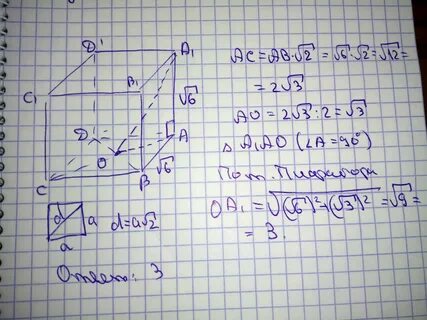 D' A₁
C₁ B₁
√6
D A
O √6
C B
d a d=a√2
a
Ответ: 3
AC=AB·√2=√6·√2=√12=
=2√3
AO=2√3:2=√3
△ A₁AO (∠A=90°)
По т. Пифагора
OA₁=√(√6)²+(√3)²=√9=
=3.